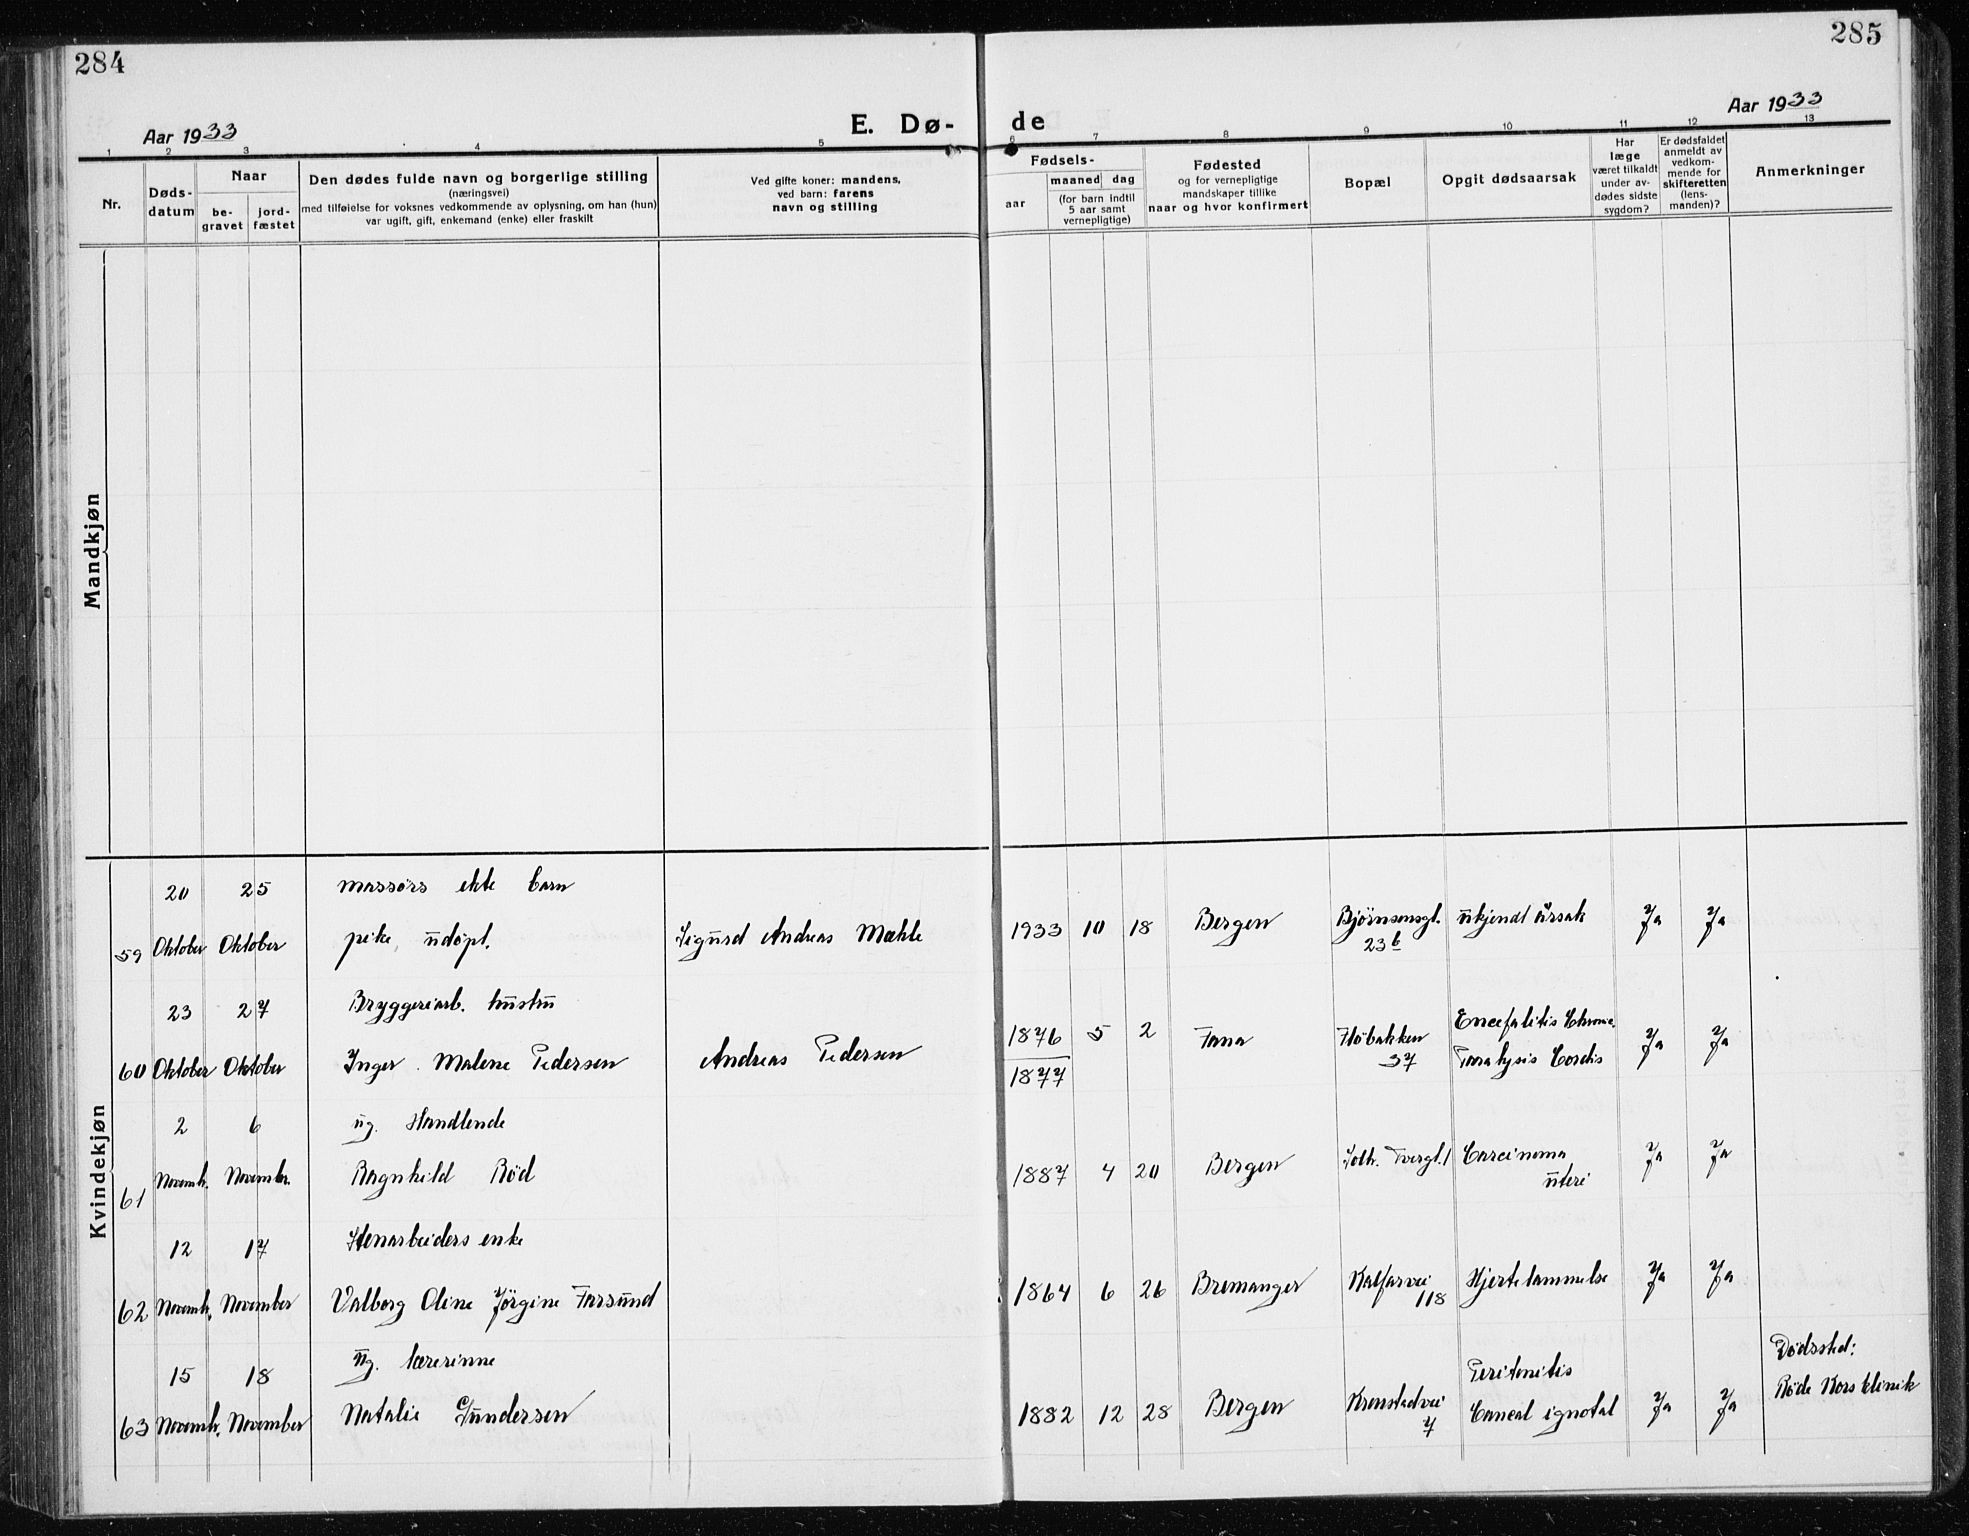 284
285
Aar 1933
E. Dø-
de
Aar 1933
1 2 3 4 5 6 7 8 9 10 11 12 13
Nr.
Døds-
datum
Naar
be-
gravet
jord-
fæstet
Den dødes fulde navn og borgerlige stilling
(næringsvei)
med tilføielse for voksnes vedkommende av oplysning, om han (hun)
var ugift, gift, enkemand (enke) eller fraskilt
Ved gifte koner: mandens,
ved barn: farens
navn og stilling
Fødsels-
aar
maaned dag
(for barn indtil
5 aar samt
vernepligtige)
Fødested
og for vernepligtige
mandskaper tillike
naar og hvor konfirmert
Bopæl
Opgit dødsaarsak
Har
læge
været tilkaldt
under av-
dødes sidste
sygdom?
Er dødsfaldet
anmeldt av
vedkom-
mende for
skifteretten
(lens-
manden)?
Anmerkninger
Mandkjøn
Kvindekjøn
20 25 massørs ekte barn
59 Oktober Oktober pike, udøpt. Sigurd Andreas Mæhle 1933 10 18 Bergen Bjørnsonsgt. ukjendt årsak Ja Ja
23b
23 27 Bryggeriarb. hustru
60 Oktober Oktober Inger Malene Pedersen Andreas Pedersen 1876 5 2 Fana Fløbakken Encefalitis Chronic. Ja Ja
1877 37 Paralysis Cordis
2 6 ug. Handlende
61 Novemb. November. Ragnhild Rød 1887 4 20 Bergen Solh. Tvergt. 1 Carcinoma Ja Ja
uteri
12 17 Stenarbeiders enke
62 Novemb. November Valborg Oline Jørgine Farsund 1864 6 26 Bremanger Kalfarvei Hjertelammelse Ja Ja
118
15 18 ug. lærerinne Peritonitis Dødssted:
63 Novemb. November Natalie Gundersen 1882 12 28 Bergen Kronstadvei Ja Ja Røde Kors klinik
7